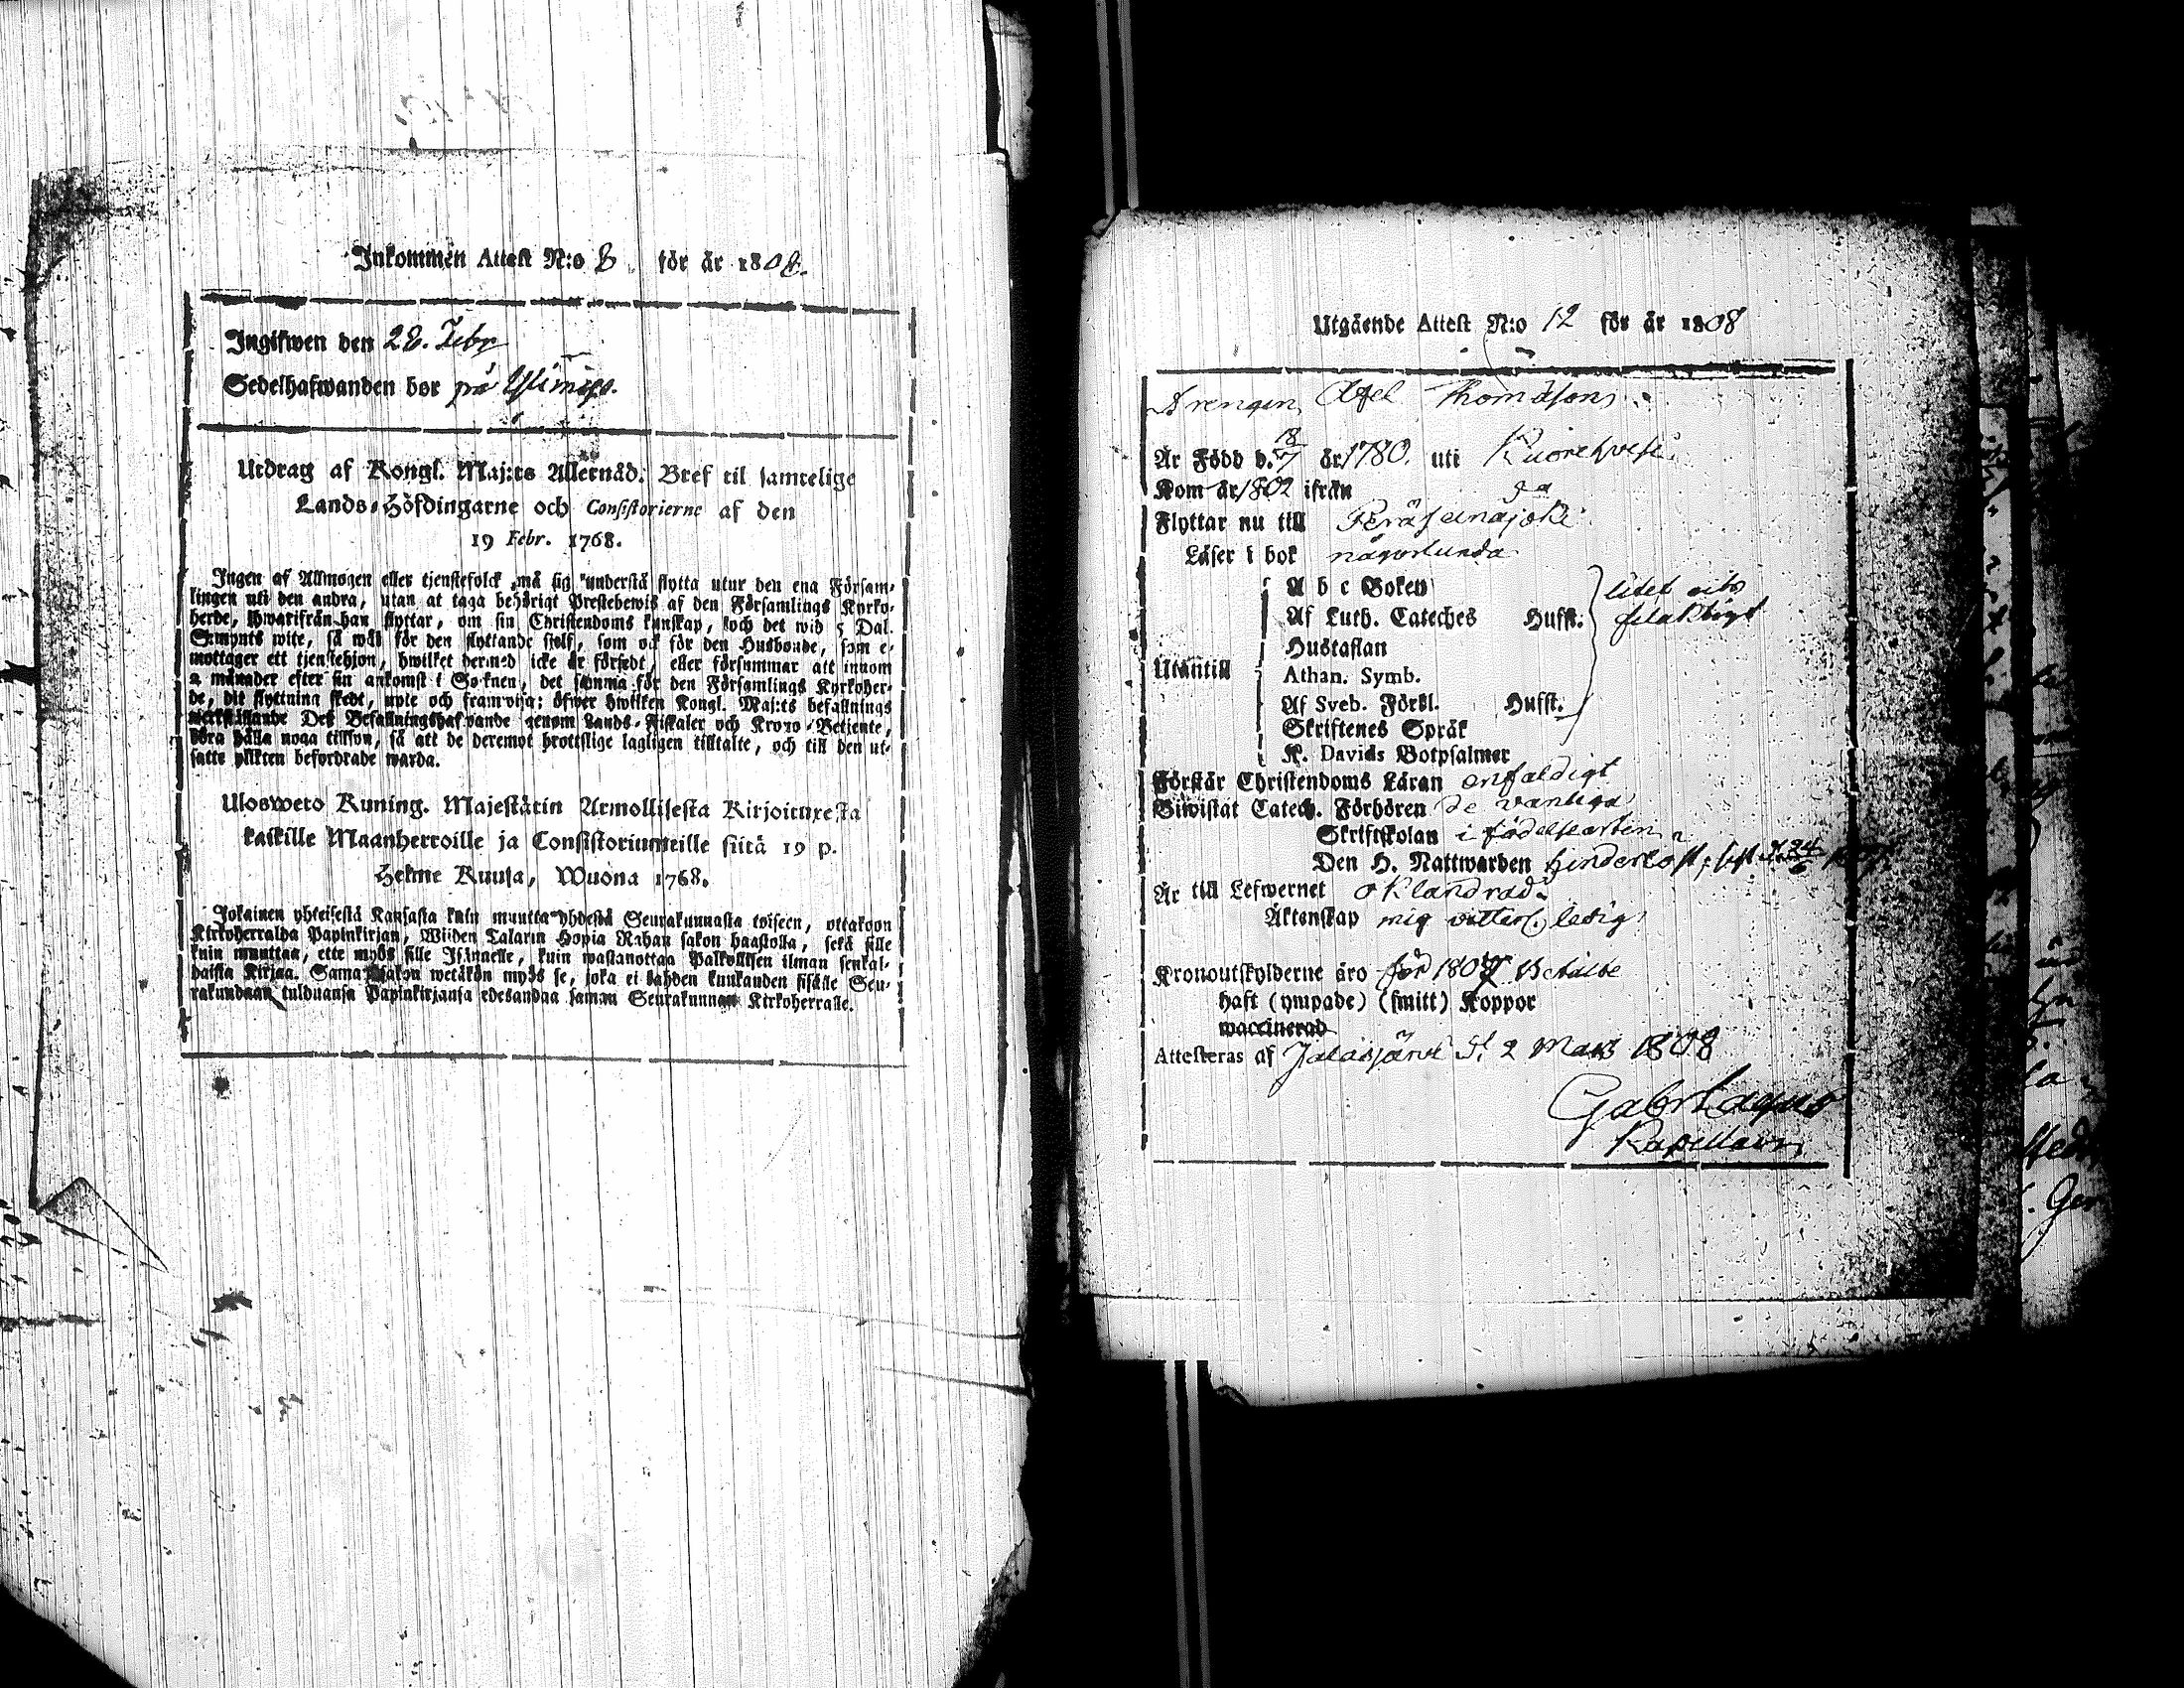 Inkommen Attest N:o 8 för år 1808.
Ingifwen den 28. Febr
Sedelhafwanden bor på
Utdrag af Kongl. Maj:ts Allernåd. Bref til samtelige
Lands-Höfdingarne och Consistorierne af den
19 Febr. 1768.
Ingen af Allmogen eller tjenstefolck må sig understå flytta utur den ena Försam-
lingen uti den andra, utan at taga behörigt Prestebewis af den Församlings Kyrko-
herde, hwarifrån han flyttar, om sin Christendoms kunskap, och det wid 5 Dal.
S:mynts wite, så wäl för den flyttande sjelf, som ock för den Husbonde, som e-
mottager ett tjenstehjon, hwilket dermed icke är försedt, eller försummar att innom
2 månader efter sin ankomst i Soknen, det samma för den Församlings Kyrkoher-
de, dit flyttning skedt, upte och framwisa; öfwer hwilken Kongl. Maj:ts befallnings
werkställande Des Befallningshafwande genom Lands-Fiskaler och Krono-Betjente,
böra hålla noga tillsyn, så att de deremot brottslige lagligen tilltalte, och till den ut-
satte plikten befordrade warda.
Ulosweto Kuning. Majestätin Armollisesta Kirjoituxesta
kaikille Maanherroille ja Consistoriumeille siitä 19 p.
Helme Kuusa, Wuona 1768.
Jokainen yhteisestä Kansasta kuin muutta yhdestä Seurakunnasta toiseen, ottakoon
Kirkoherralda Papinkirjan, Wiiden Talarin Hopia Rahan sakon haastolla, sekä sille
kuin muuttaa, ette myös sille Isännelle, kuin wastanottaa Palkollisen ilman senkal-
daista Kirjaa. Saman sakon wetäkön myös se, joka ei kahden kuukauden sisälle Seu-
rakundaan tulduansa Papinkirjansa edesandaa saman Seurakunnan Kirkoherralle.
Utgående Attest N:o 12 för år 1808
Drengen Axel Thomasson
Är Född d. 18/7 år 1780. uti Kuorehvesi
Kom år 1802 ifrån
Flyttar nu till Peräseinäjoki
Läser i bok någorlunda
Utantill
A b c Boken
Af Luth. Cateches Hufst.
litet och
felaktigt
Hustaflan
Athan. Symb.
Af Sveb. Förkl. Hufst.
Skriftenes Språk
K. Davids Botpsalmer
Förstår Christendoms Läran enfaldigt
Biwistat Catech. Förhören de vanliga
Skriftskolan i födelseorten
Den H. Nattwarden hinderlöst, sist d. 24/6
Är till Lefwernet oklandrad
Äktenskap mig vitterl. ledig
Kronoutskylderne äro för 1807 betalte
haft (ympade) (smitt) Koppor
waccinerad
Attesteras af Jalasjärvi d. 2 Mars 1808
Gabr Lagus
Kapellan